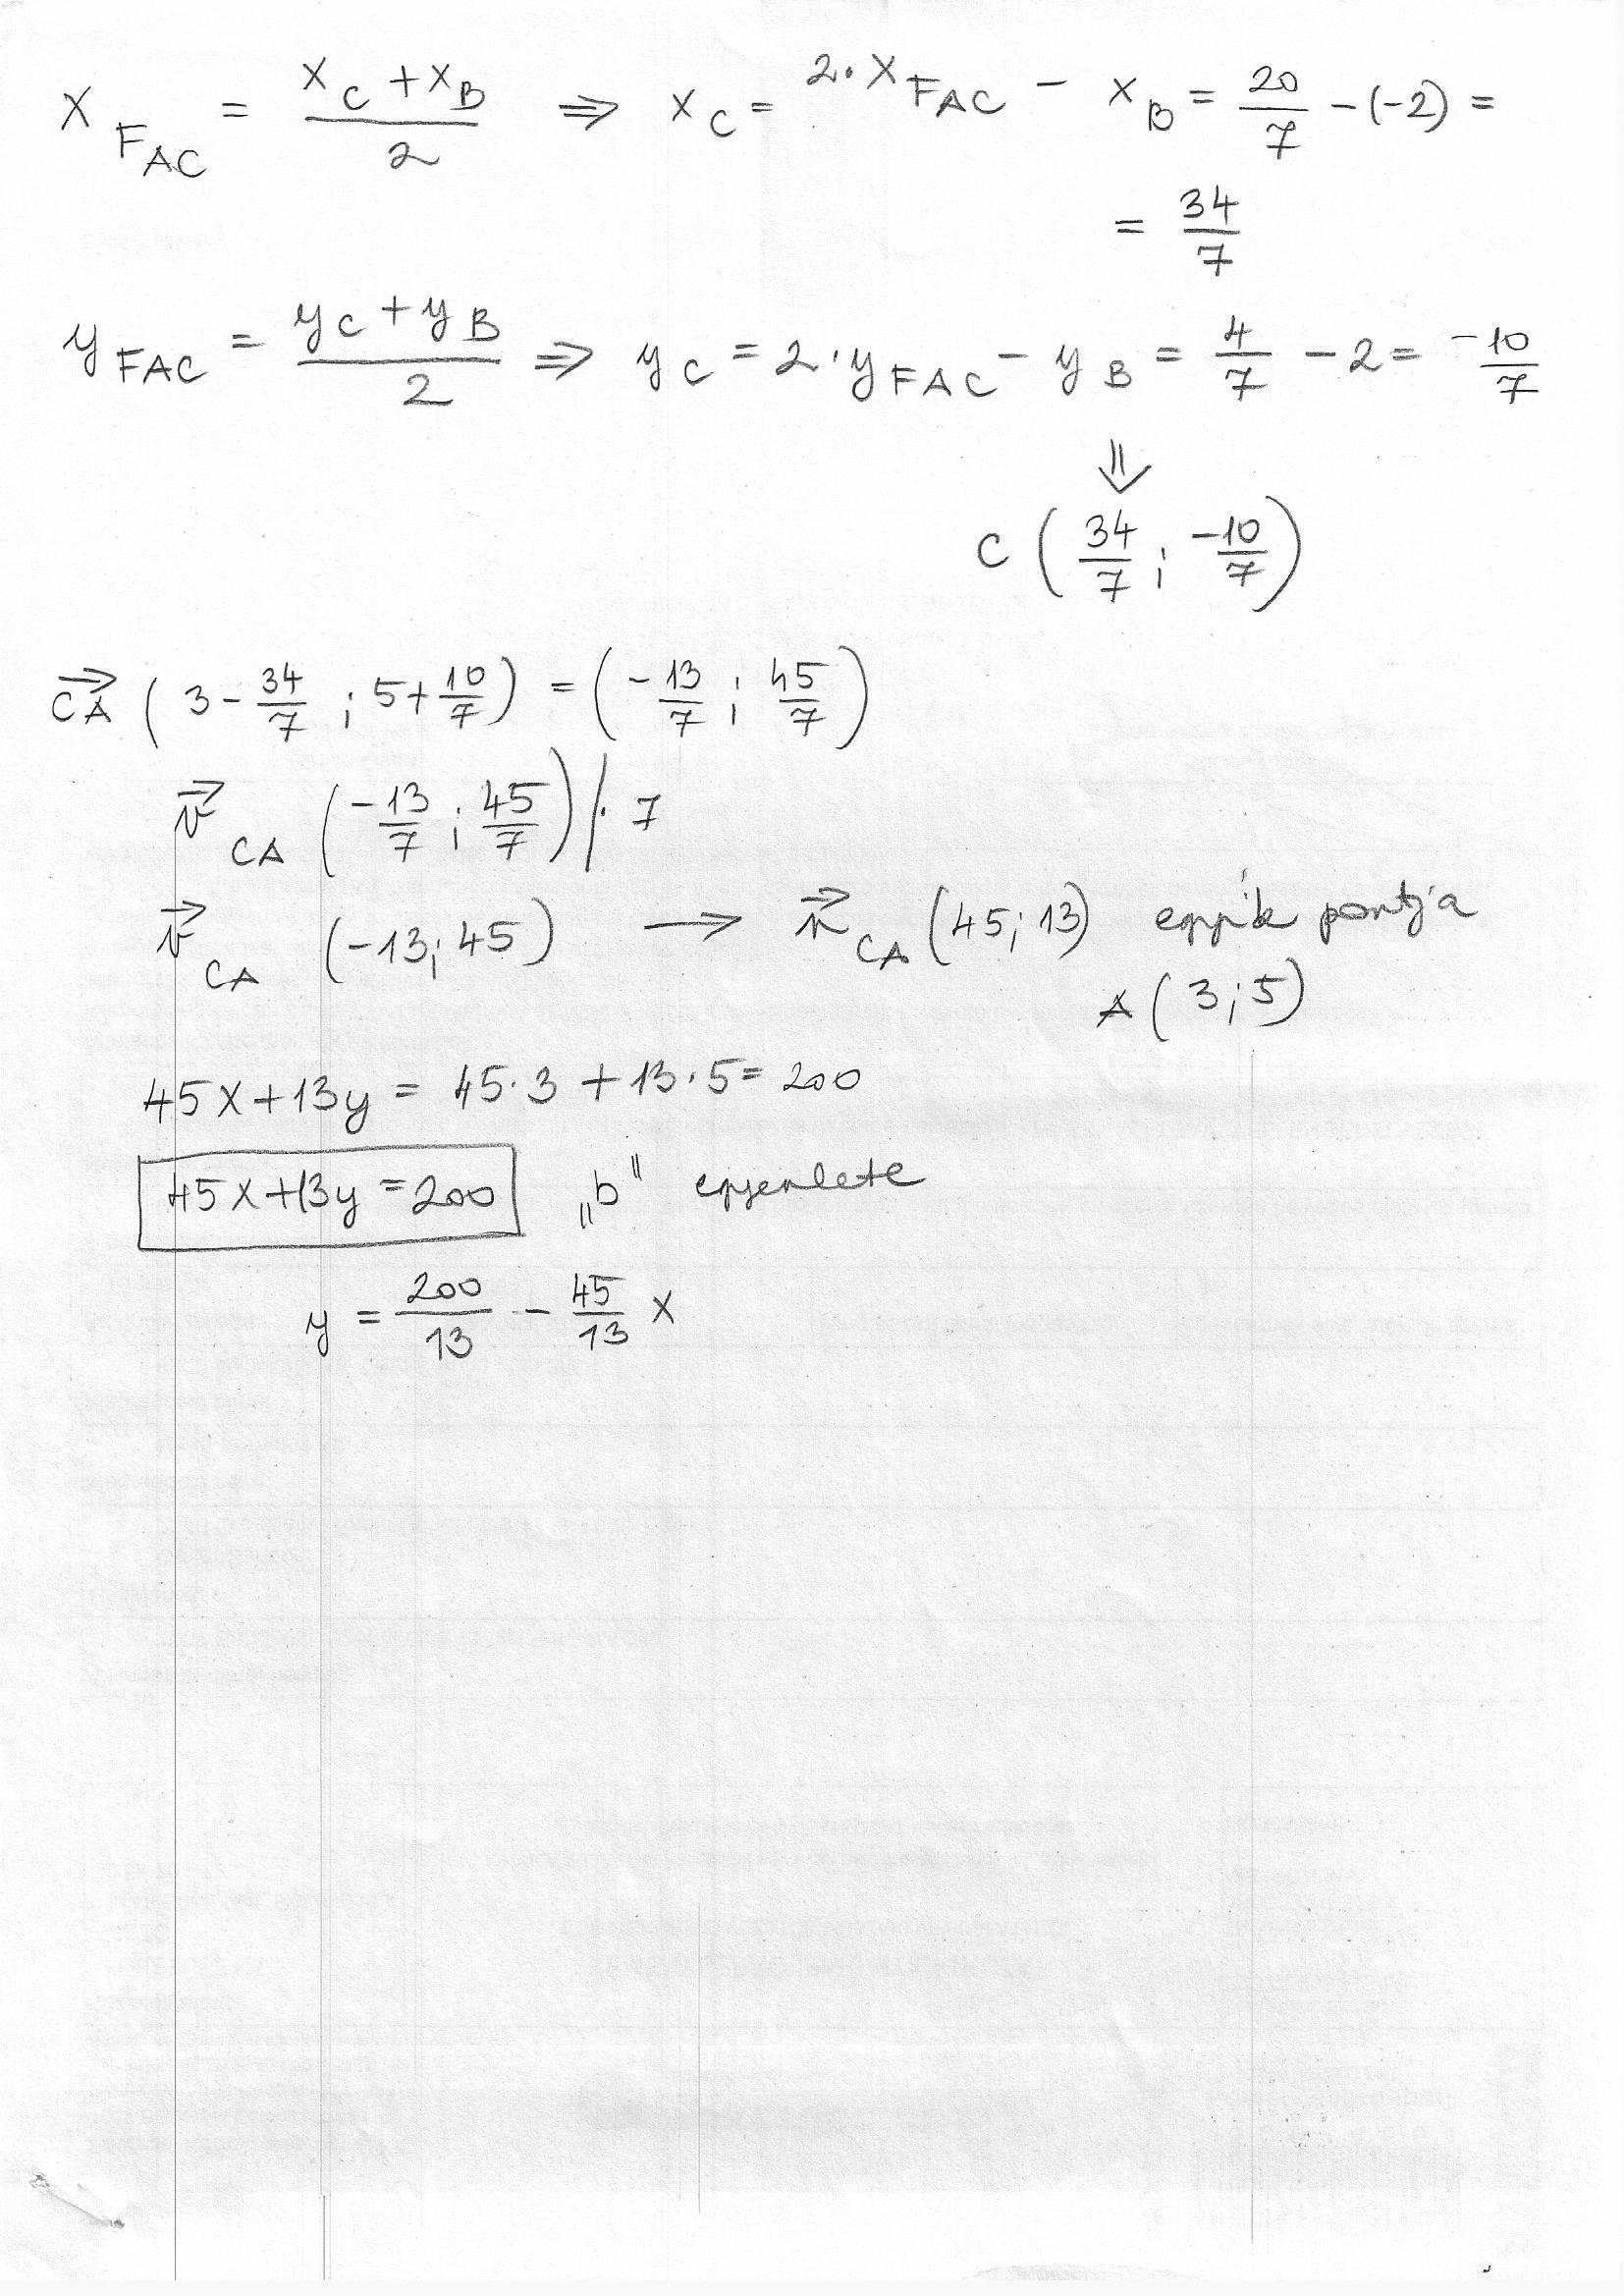 x_{F_{AC}} = \frac{x_C + x_B}{2} ⇒ x_C = 2·x_{FAC} - x_B = \frac{20}{7} - (-2) =
= \frac{34}{7}
y_{FAC} = \frac{y_C + y_B}{2} ⇒ y_C = 2·y_{FAC} - y_B = \frac{4}{7} - 2 = \frac{-10}{7}
⇓
C (\frac{34}{7} ; \frac{-10}{7})
\vec{CA} (3 - \frac{34}{7} ; 5 + \frac{10}{7}) = (-\frac{13}{7} ; \frac{45}{7})
\vec{v}_{CA} (-\frac{13}{7} ; \frac{45}{7}) /· 7
\vec{v}_{CA} (-13; 45) → \vec{n}_{CA} (45; 13) egyik pontja
A (3; 5)
45x + 13y = 45·3 + 13·5 = 200
45x + 13y = 200 „b" egyenlete
y = \frac{200}{13} - \frac{45}{13} x